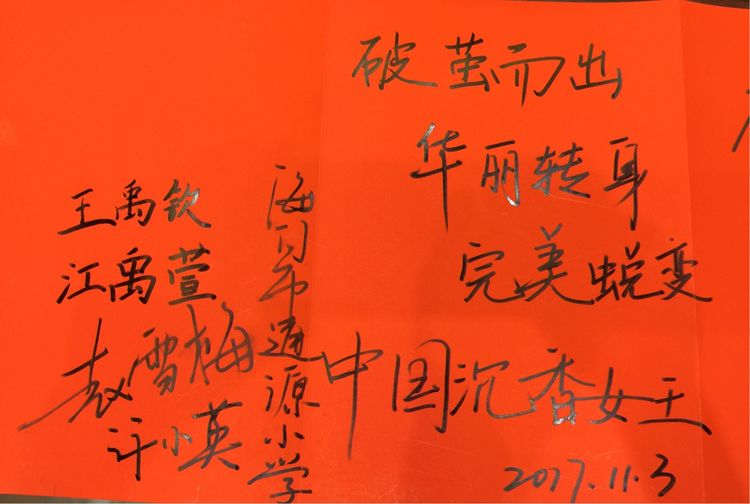 破茧而出
华丽转身
完美蜕变
中国沉香女王
2017.11.3
海口市通源小学
王禹钦
江禹萱
袁雪梅
许小英